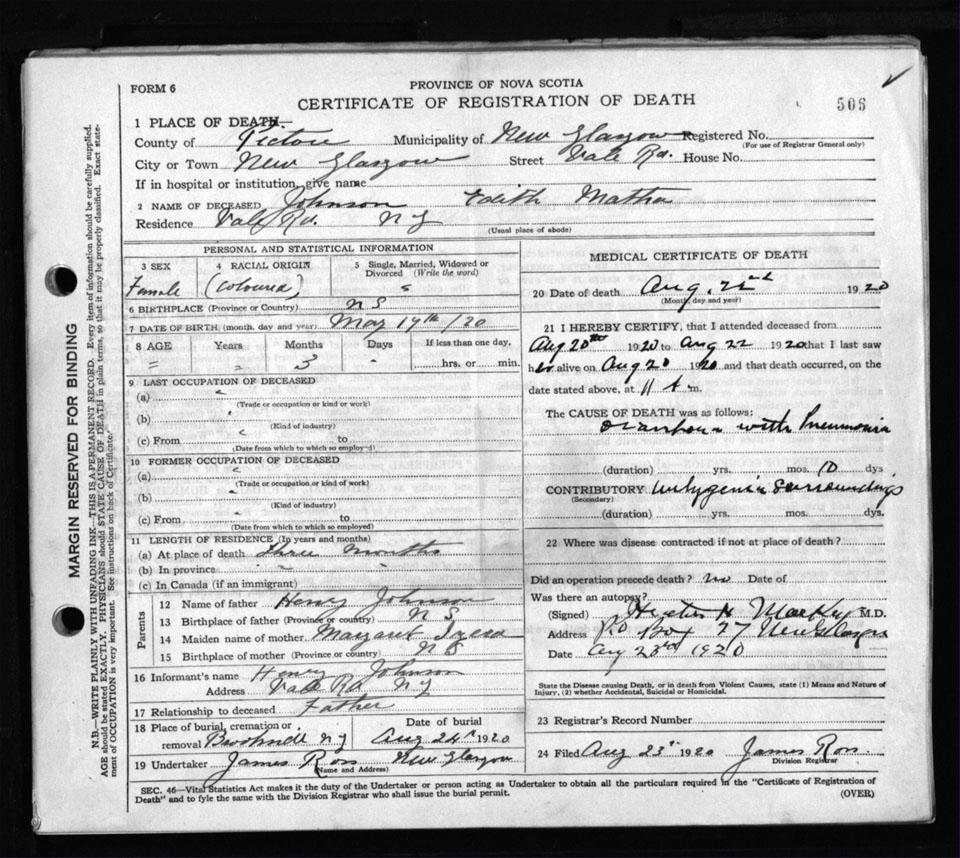 FORM 6
PROVINCE OF NOVA SCOTIA
CERTIFICATE OF REGISTRATION OF DEATH
506
1 PLACE OF DEATH—
County of Pictou Municipality of New Glasgow Registered No.
(For use of Registrar General only)
City or Town New Glasgow Street Vale Rd. House No.
If in hospital or institution, give name
2 NAME OF DECEASED Johnson Edith
Residence Vale Rd. N G
(Usual place of abode)
PERSONAL AND STATISTICAL INFORMATION
3 SEX 4 RACIAL ORIGIN 5 Single, Married, Widowed or Divorced (Write the word)
Female (Coloured) s
6 BIRTHPLACE (Province or Country) N S
7 DATE OF BIRTH (month, day and year) May 19th /20
8 AGE Years Months Days If less than one day,
3 hrs. or min.
9 LAST OCCUPATION OF DECEASED
(a)
(Trade or occupation or kind of work)
(b)
(Kind of industry)
(c) From to
(Date from which to which so employed)
10 FORMER OCCUPATION OF DECEASED
(a)
(Trade or occupation or kind of work)
(b)
(Kind of industry)
(c) From to
(Date from which to which so employed)
11 LENGTH OF RESIDENCE (In years and months)
(a) At place of death three months
(b) In province
(c) In Canada (if an immigrant)
Parents
12 Name of father Henry Johnson
13 Birthplace of father (Province or country) N S
14 Maiden name of mother Margaret
15 Birthplace of mother (Province or country) N S
16 Informant's name Henry Johnson
Address Vale Rd. N G
17 Relationship to deceased Father
18 Place of burial, cremation or removal Date of burial
N G Aug 24th 1920
19 Undertaker James Ross New Glasgow
(Name and Address)
MEDICAL CERTIFICATE OF DEATH
20 Date of death Aug. 22nd 1920
(Month, day and year)
21 I HEREBY CERTIFY, that I attended deceased from
Aug 20th 1920 to Aug 22 1920 that I last saw
her alive on Aug 20 1920 and that death occurred, on the
date stated above, at 11 A m.
The CAUSE OF DEATH was as follows:
Diarrhoea with Pneumonia
(duration) yrs. mos. 10 dys
CONTRIBUTORY unhygenic surroundings
(Secondary)
(duration) yrs. mos. dys.
22 Where was disease contracted if not at place of death?
Did an operation precede death? no Date of
Was there an autopsy?
(Signed) H MacKay M.D.
Address P.O Box 77 New Glasgow
Date Aug 23rd 1920
State the Disease causing Death, or in death from Violent Causes, state (1) Means and Nature of
Injury, (2) whether Accidental, Suicidal or Homicidal.
23 Registrar's Record Number
24 Filed Aug 23rd 1920 James Ross
Division Registrar
SEC. 46—Vital Statistics Act makes it the duty of the Undertaker or person acting as Undertaker to obtain all the particulars required in the "Certificate of Registration of
Death" and to fyle the same with the Division Registrar who shall issue the burial permit.
(OVER)
MARGIN RESERVED FOR BINDING
N.B.—WRITE PLAINLY WITH UNFADING INK—THIS IS A PERMANENT RECORD. Every item of information should be carefully supplied.
AGE should be stated EXACTLY. PHYSICIANS should STATE CAUSE OF DEATH in plain terms, so that it may be properly classified. Exact statement of OCCUPATION is very important. See instructions on back of Certificate.